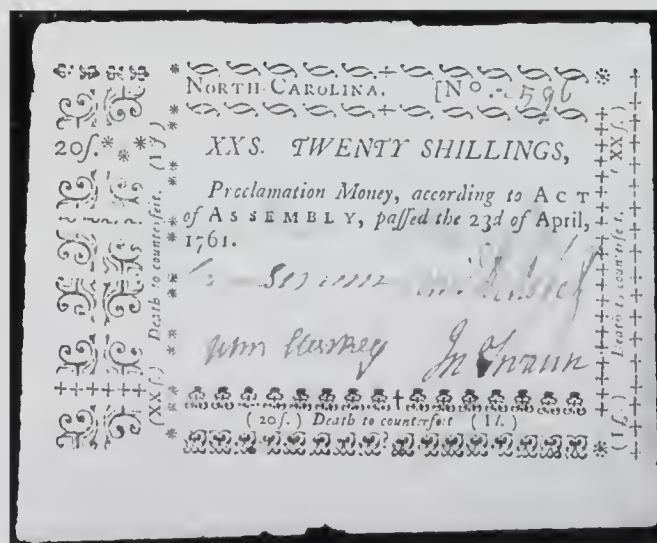 NORTH-CAROLINA. [No. 596
20ſ.
XXS. TWENTY SHILLINGS,
Proclamation Money, according to ACT
of ASSEMBLY, paſſed the 23d of April,
1761.
John Starkey
(20ſ.) Death to counterfeit (1l.)
(XXſ.) Death to counterfeit. (1ſ)
(1ſ.) Death to counterfeit. (XXſ.)